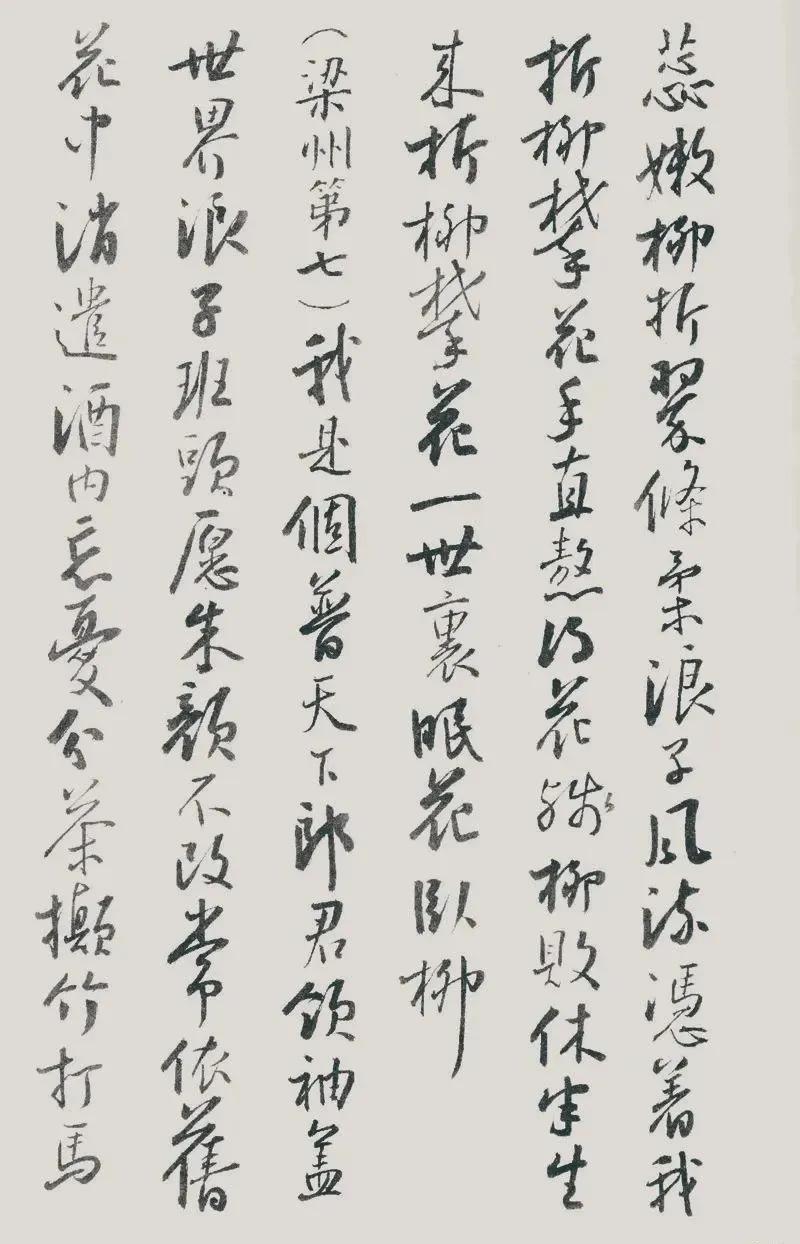 蕊嫩柳折翠條柔浪子風流憑着我
折柳攀花手直熬得花殘柳敗休半生
來折柳攀花一世裏眠花臥柳
（梁州第七）我是個普天下郎君領袖蓋
世界浪子班頭愿朱顏不改常依舊
花中消遣酒内忘憂分茶攧竹打馬